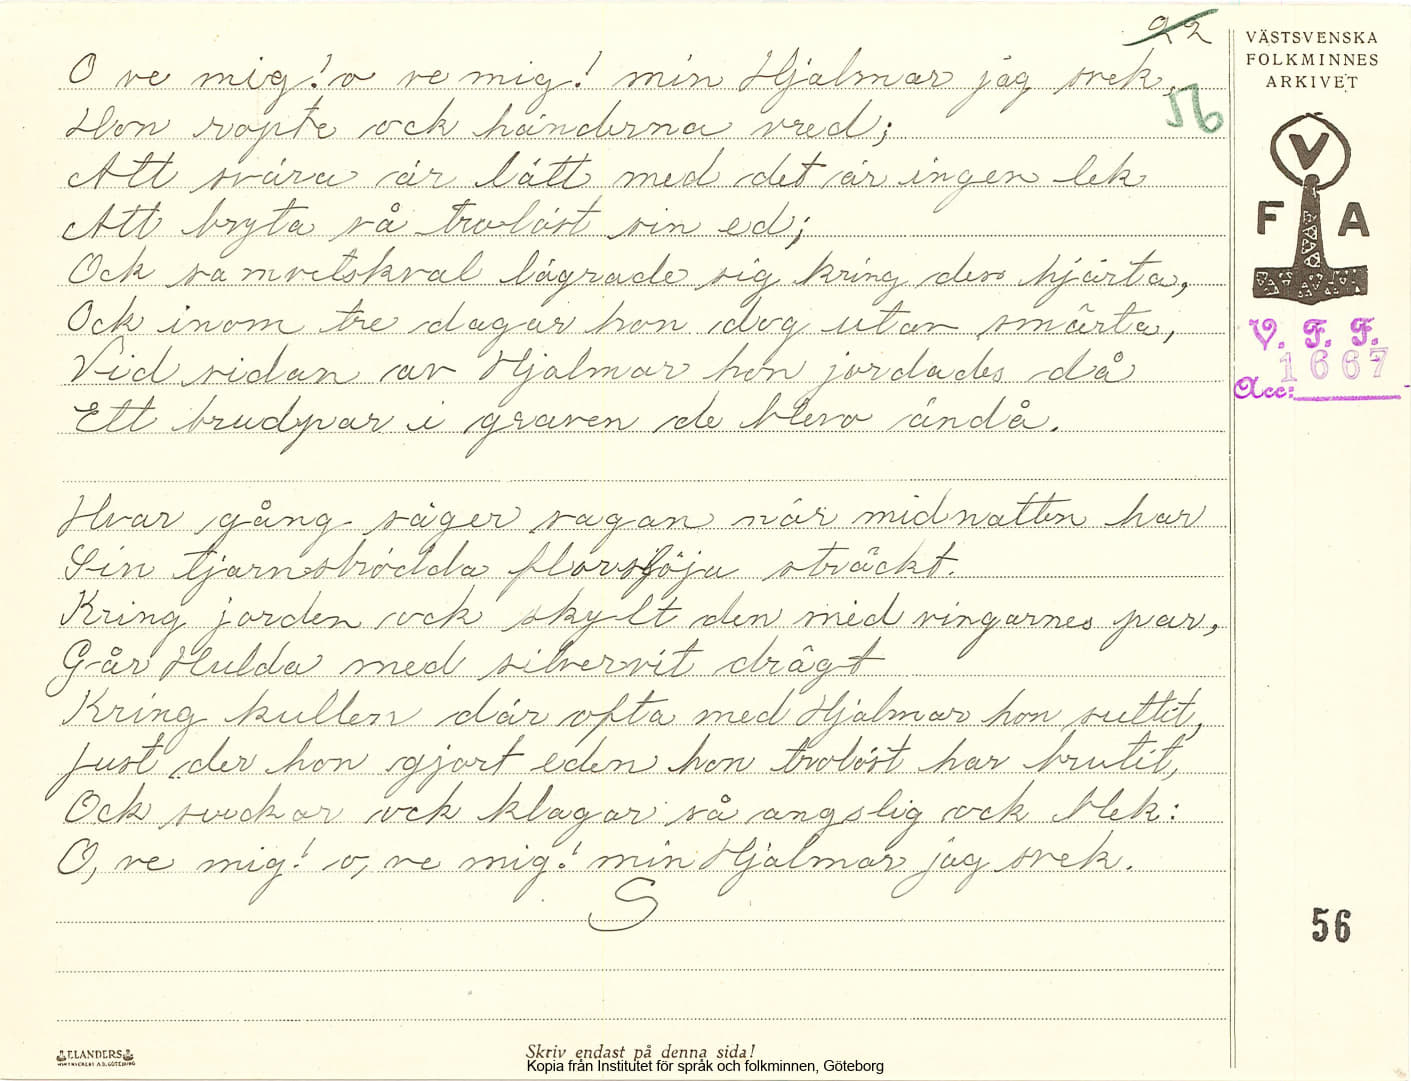 22
56
O ve mig! o ve mig! min Hjalmar jag svek,
Hon ropte ock händerna vred;
Att svära är lätt med det är ingen lek
Att bryta så trolöst sin ed;
Ock samvetskval lägrade sig kring des hjärta,
Ock inom tre dagar hon dog utav smärta,
Vid sidan av Hjalmar hon jordades då
Ett brudpar i graven de blevo ändå.
Hvar gång säger sagan när midnatten har
Sin tjärnströdda florslöja sträckt.
Kring jorden ock skylt den med vingarnes par,
Går Hulda med silvervit drägt
Kring kullen där ofta med Hjalmar hon suttit,
just der hon gjort eden hon trolöst har brutit,
Ock suckar ock klagar så angslig ock blek:
O, ve mig! o, ve mig! min Hjalmar jag svek.
S
VÄSTSVENSKA
FOLKMINNES
ARKIVET
V
F A
V. F. F.
1667
Acc:
56
ELANDERS
Skriv endast på denna sida!
Kopia från Institutet för språk och folkminnen, Göteborg